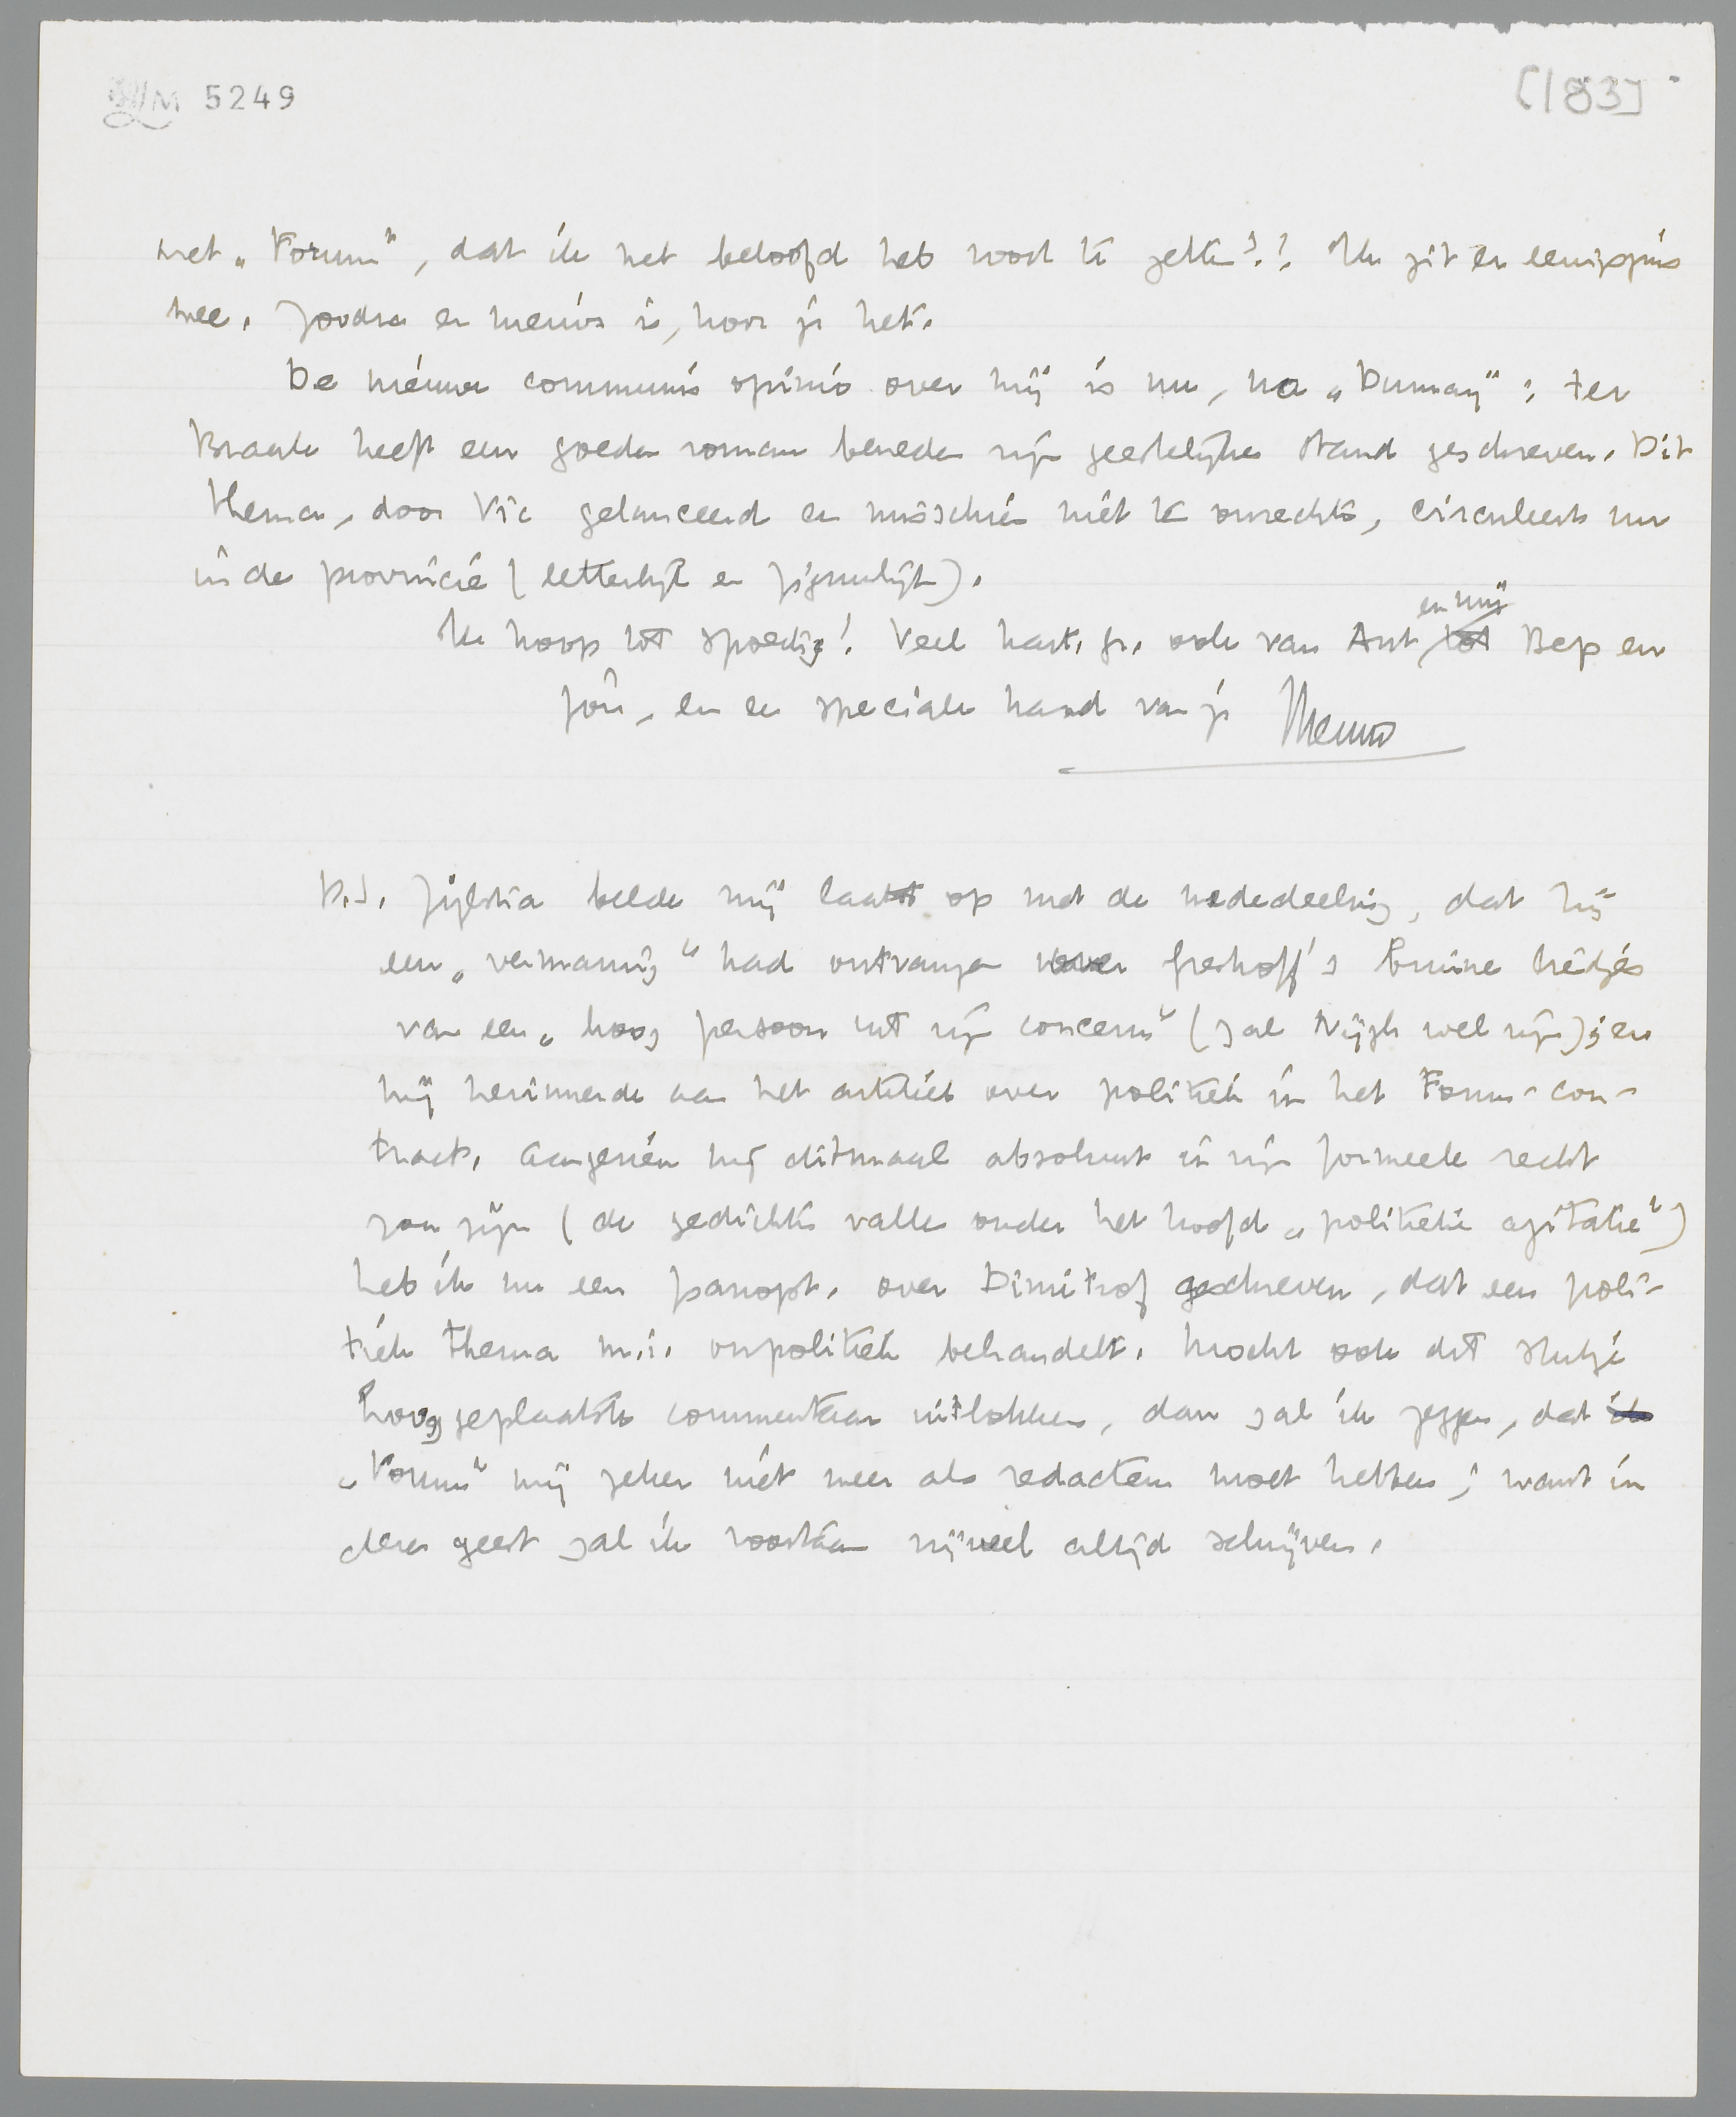 LM 5249
[183]
met „Forum", dat ik het beloofd heb voort te zetten?! Ik zit er eenigszins
mee. Zoodra er nieuws is, hoor je het.
De nieuwe communis opinio over mij is nu, na „Dumay": ter
Braak heeft een goeden roman beneden zijn geestelijken stand geschreven. Dit
thema, door Vic gelanceerd en misschien niet ten onrechte, circuleert nu
in de provincie (letterlijk en figuurlijk).
Ik hoop tot spoedig! Veel hart. gr. ook van Ant tot en mij Bep en
jou, en een speciale hand van je Menno
P.S. Zijlstra belde mij laatst op met de mededeeling, dat hij
een „vermaning" had ontvangen over Greshoff's bruine liedjes
van een „hoog persoon uit zijn concern" (zal Nijgh wel zijn); en
hij herinnerde aan het artikel over politiek in het Forum-con-
tract. Aangezien hij ditmaal absoluut in zijn formeele recht
zou zijn (de gedichten vallen onder het hoofd „politieke agitatie")
heb ik nu een panopt. over Dimitrof geschreven, dat een poli-
tiek thema m.i. onpolitiek behandelt. Mocht ook dit stukje
hooggeplaatste commentaar uitlokken, dan zal ik zeggen, dat ik
„Forum" mij zeker niet meer als redacteur moet hebben; want in
dezen geest zal ik voortaan vrijwel altijd schrijven.